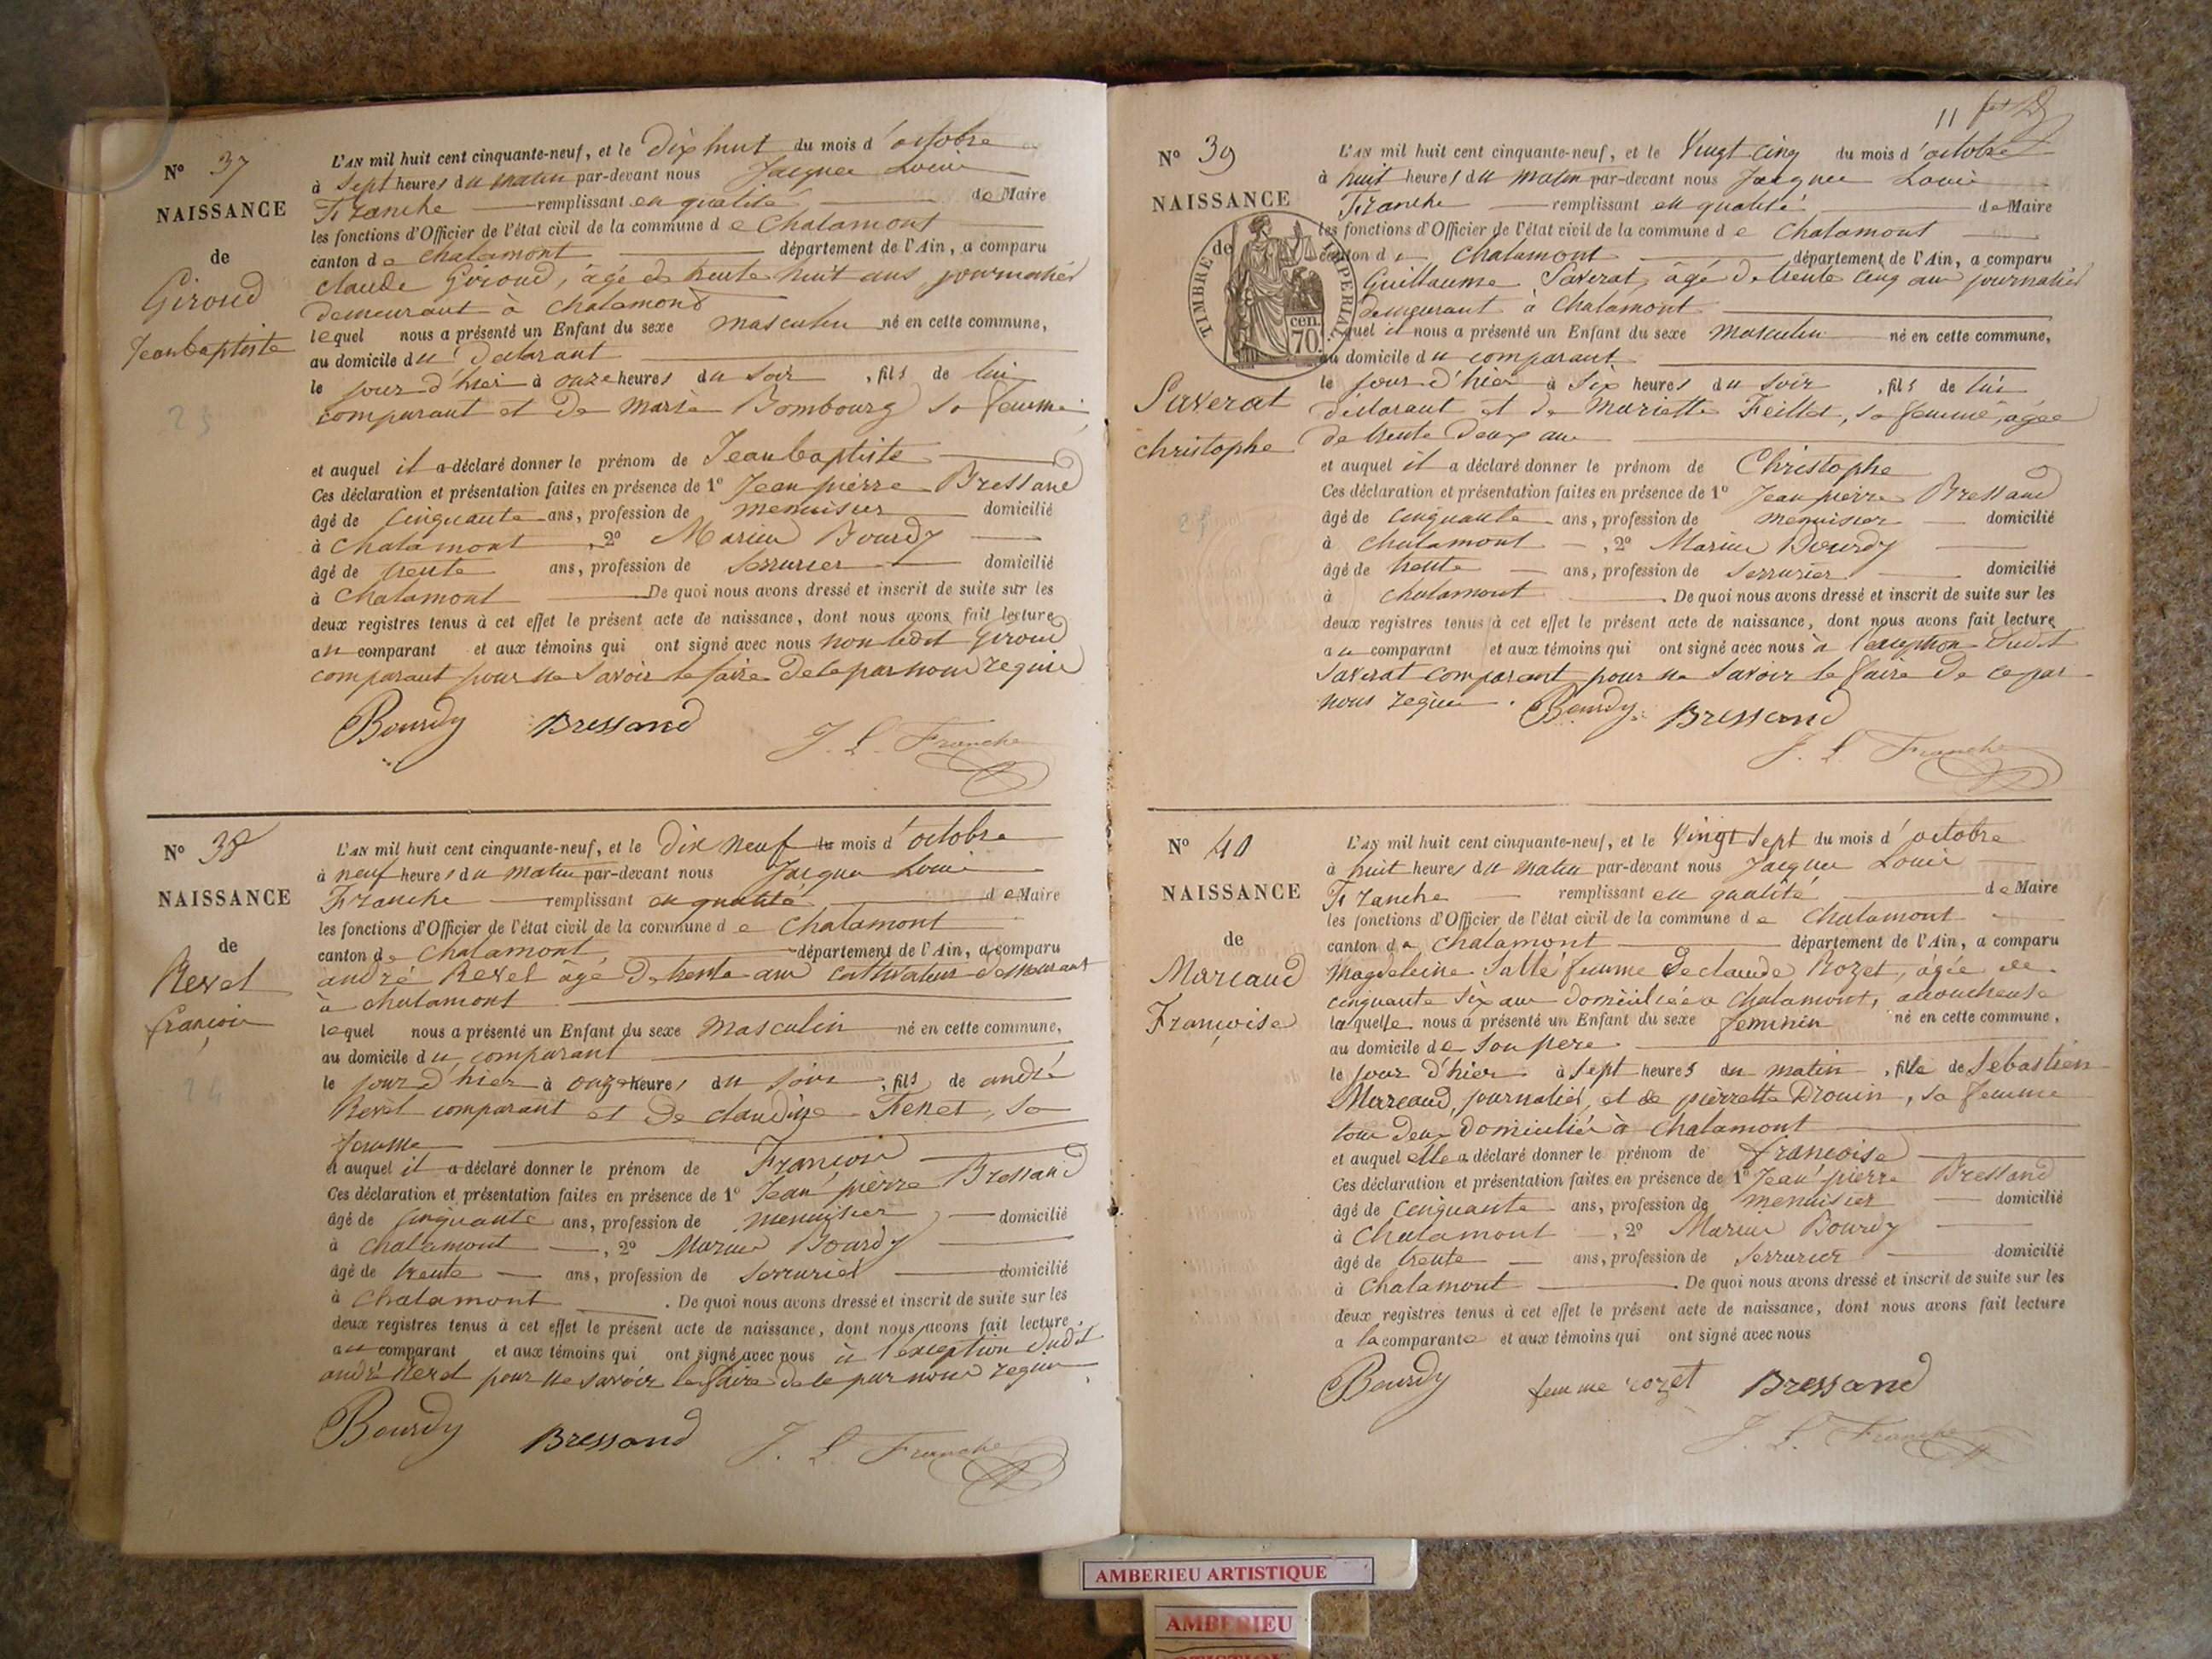 N° 37
NAISSANCE
de
Giroud
Jean baptiste
23
L'AN mil huit cent cinquante-neuf, et le dix huit du mois d'octobre
à sept heures du matin par-devant nous Jacques Louis
Franche remplissant en qualité de Maire
les fonctions d'Officier de l'état civil de la commune de Chalamont
canton de Chalamont département de l'Ain, a comparu
claude Giroud, âgé de trente huit ans, journalier
demeurant à Chalamont
lequel nous a présenté un Enfant du sexe masculin né en cette commune,
au domicile du déclarant
le jour d'hier à onze heures du soir, fils de lui
comparant et de Marie Bombourg sa femme
et auquel il a déclaré donner le prénom de Jean baptiste
Ces déclaration et présentation faites en présence de 1° Jean pierre Bressand
âgé de cinquante ans, profession de menuisier domicilié
à Chalamont, 2° Marius Bourdy
âgé de trente ans, profession de serrurier domicilié
à Chalamont De quoi nous avons dressé et inscrit de suite sur les
deux registres tenus à cet effet le présent acte de naissance, dont nous avons fait lecture
au comparant et aux témoins qui ont signé avec nous non ledit Giroud
comparant pour ne savoir le faire de ce par nous requis
Bourdy Bressand J. L. Franche
N° 38
NAISSANCE
de
Revel
françois
24
L'AN mil huit cent cinquante-neuf, et le dix neuf du mois d'octobre
à neuf heures du matin par-devant nous Jacques Louis
Franche remplissant en qualité de Maire
les fonctions d'Officier de l'état civil de la commune de Chalamont
canton de Chalamont département de l'Ain, a comparu
andré Revel âgé de trente ans cultivateur demeurant
à chalamont
lequel nous a présenté un Enfant du sexe masculin né en cette commune,
au domicile du comparant
le jour d'hier à onze heures du soir, fils de andré
Revel comparant et de claudine sa
femme
et auquel il a déclaré donner le prénom de François
Ces déclaration et présentation faites en présence de 1° Jean pierre Bressand
âgé de cinquante ans, profession de menuisier domicilié
à chalamont, 2° Marius Bourdy
âgé de trente ans, profession de serrurier domicilié
à Chalamont. De quoi nous avons dressé et inscrit de suite sur les
deux registres tenus à cet effet le présent acte de naissance, dont nous avons fait lecture
au comparant et aux témoins qui ont signé avec nous à l'exception dudit
andré Revel pour ne savoir le faire de ce par nous requis
Bourdy Bressand J. L. Franche
11
N° 39
NAISSANCE
de
TIMBRE IMPERIAL
cen.
70
Saverat
christophe
25
L'AN mil huit cent cinquante-neuf, et le Vingt cinq du mois d'octobre
à huit heures du matin par-devant nous Jacques Louis
Franche remplissant en qualité de Maire
les fonctions d'Officier de l'état civil de la commune de Chalamont
canton de Chalamont département de l'Ain, a comparu
Guillaume Saverat, âgé de trente cinq ans journalier
demeurant à Chalamont
lequel il nous a présenté un Enfant du sexe masculin né en cette commune,
au domicile du comparant
le jour d'hier à six heures du soir, fils de lui
déclarant et de Mariette Feillet, sa femme, âgée
de trente deux ans
et auquel il a déclaré donner le prénom de Christophe
Ces déclaration et présentation faites en présence de 1° Jean pierre Bressand
âgé de cinquante ans, profession de menuisier domicilié
à chalamont, 2° Marius Bourdy
âgé de trente ans, profession de serrurier domicilié
à chalamont. De quoi nous avons dressé et inscrit de suite sur les
deux registres tenus à cet effet le présent acte de naissance, dont nous avons fait lecture
au comparant et aux témoins qui ont signé avec nous à l'exception dudit
Saverat comparant pour ne savoir le faire de ce par
nous requis. Bourdy Bressand
J. L. Franche
N° 40
NAISSANCE
de
Mareaud
Françoise
L'AN mil huit cent cinquante-neuf, et le Vingt sept du mois d'octobre
à huit heures du matin par-devant nous Jacques Louis
Franche remplissant en qualité de Maire
les fonctions d'Officier de l'état civil de la commune de Chalamont
canton de Chalamont département de l'Ain, a comparu
Magdeleine Sallé femme de claude Rozet, âgée de
cinquante six ans domiciliée à Chalamont, accoucheuse
laquelle nous a présenté un Enfant du sexe feminin né en cette commune,
au domicile de son père
le jour d'hier à sept heures du matin, fille de Sébastien
Mareaud, journalier, et de pierrette Drouin, sa femme
tous deux domiciliés à Chalamont
et auquel elle a déclaré donner le prénom de françoise
Ces déclaration et présentation faites en présence de 1° Jean pierre Bressand
âgé de cinquante ans, profession de menuisier domicilié
à Chalamont, 2° Marius Bourdy
âgé de trente ans, profession de serrurier domicilié
à Chalamont. De quoi nous avons dressé et inscrit de suite sur les
deux registres tenus à cet effet le présent acte de naissance, dont nous avons fait lecture
a la comparante et aux témoins qui ont signé avec nous
Bourdy femme rozet Bressand
J. L. Franche
AMBERIEU ARTISTIQUE
AMBERIEU
ARTISTIQUE